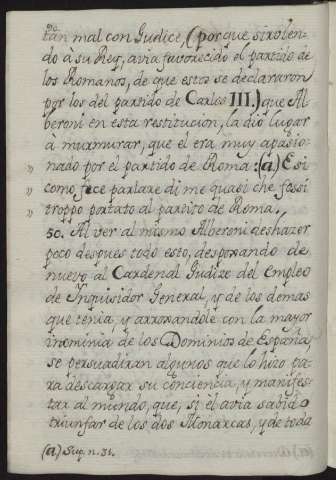 tan mal con Giudice, (porque sirvien-
do à su Rey, avia favorecido el partido de
los Romanos, de que estos se declararon
por los del partido de Carlos III.) que Al
beroni en esta restitucion, la diò lugar
à murmurar, que èl era muy apasio-
nado por el partido de Roma: (a) E si
" come fece parlare di me quasi che fossi
" troppo portato al partito de Roma.
50. Al ver al mismo Alberoni deshazer
poco despues todo esto, despojando de
nuevo al Cardenal Giudize del Empleo
de Inquisidor General, y de los demas
que tenia, y arrojandole con la mayor
ignominia de los Dominios de España,
se persuadiran algunos que lo hizo pa-
ra descargar su conciencia, y manifes-
tar al mundo, que, si èl avia sabido
triunfar de los dos Monarcas, y de toda
(a) Sup. n. 31.